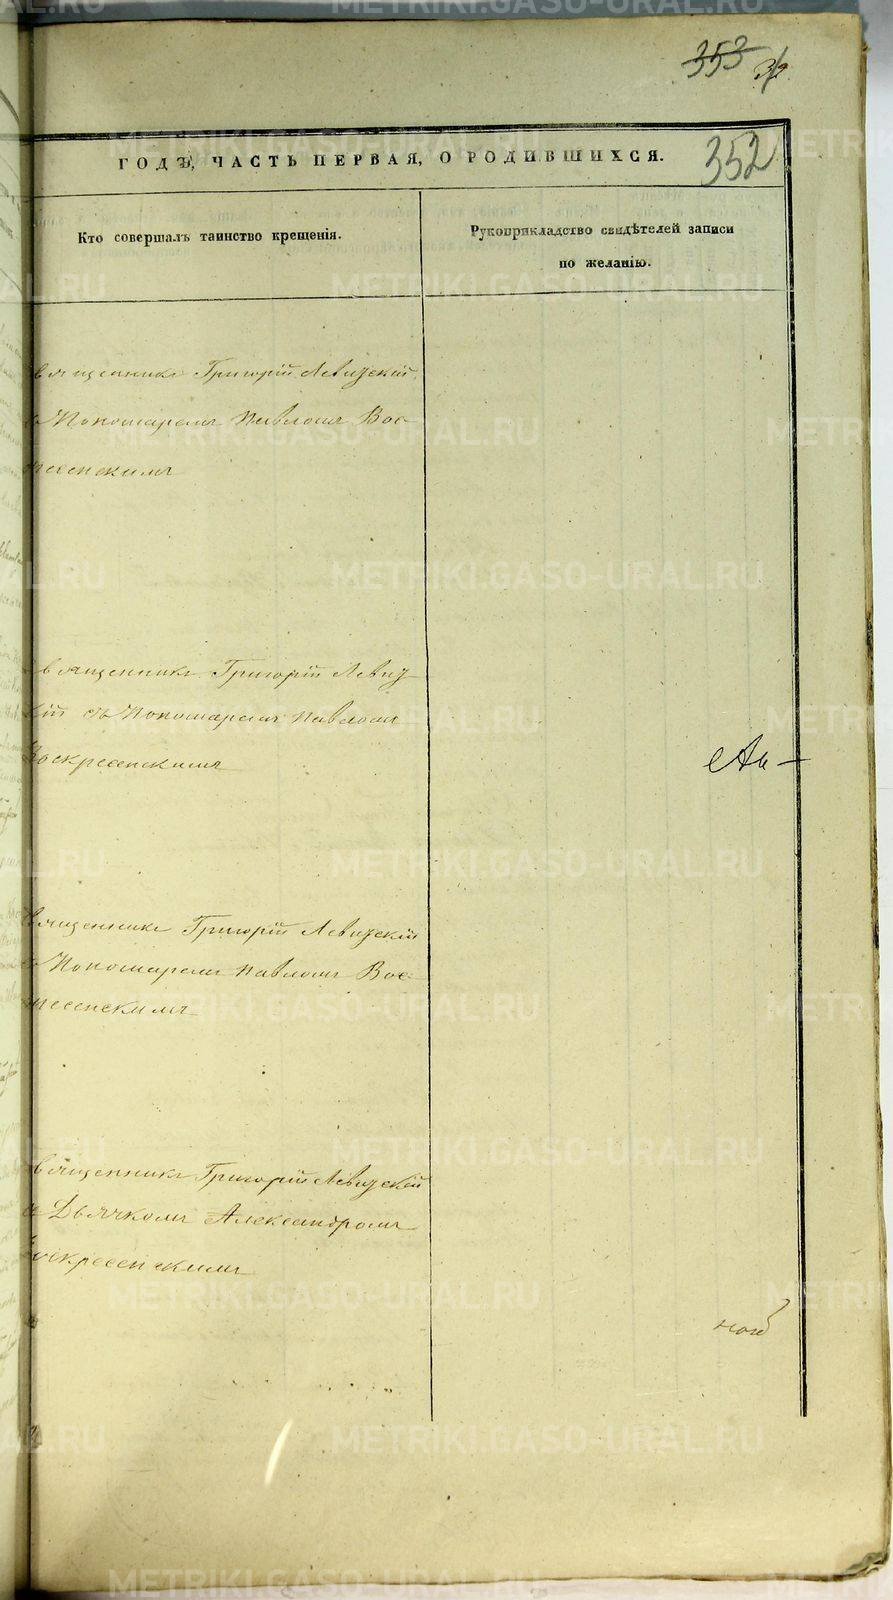 353
352
ГОДЪ, ЧАСТЬ ПЕРВАЯ, О РОДИВШИХСЯ.
Кто совершалъ таинство крещенія.
Рукоприкладство свидѣтелей записи
по желанію.
вященникъ Григорій Левицкій
ъ Пономаремъ Павломъ Вос-
ресенскимъ
вященникъ Григорій Левиц
кій съ Пономаремъ Павломъ
Воскресенскимъ
вященникъ Григорій Левицкій
ъ Пономаремъ Павломъ Вос-
ресенскимъ
вященникъ Григорій Левицкій
съ Дьячкомъ Александромъ
оскресенскимъ
METRIKI.GASO-URAL.RU